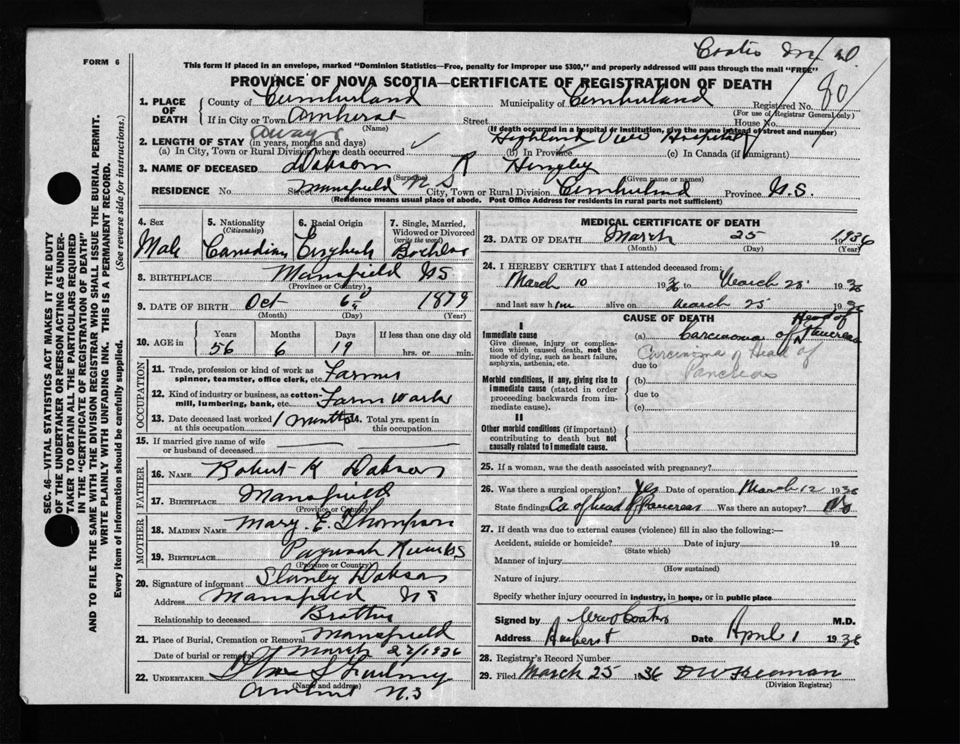 Coates M.D.
FORM 6
This form if placed in an envelope, marked "Dominion Statistics—Free, penalty for improper use $300," and properly addressed will pass through the mail "FREE"
PROVINCE OF NOVA SCOTIA—CERTIFICATE OF REGISTRATION OF DEATH
80
1. PLACE OF DEATH
County of Cumberland Municipality of Cumberland Registered No.
(For use of Registrar General only)
If in City or Town Amherst Street House No.
(Name) (If death occurred in a hospital or institution, give the name instead of street and number)
Highland View Hospital
2. LENGTH OF STAY (in years, months and days)
always
(a) In City, Town or Rural Division where death occurred (b) In Province (c) In Canada (if immigrant)
3. NAME OF DECEASED Dobson R Hingley
(Surname) (Given name or names)
RESIDENCE No. Street Mansfield N S City, Town or Rural Division Cumberland Province N.S.
(Residence means usual place of abode. Post Office Address for residents in rural parts not sufficient)
4. Sex
Male
5. Nationality
(Citizenship)
Canadian
6. Racial Origin
English
7. Single, Married, Widowed or Divorced
(write the word)
8. BIRTHPLACE Mansfield NS
(Province or Country)
9. DATE OF BIRTH Oct 6 1879
(Month) (Day) (Year)
10. AGE in
Years Months Days If less than one day old
56 6 19 hrs. or min.
OCCUPATION
11. Trade, profession or kind of work as spinner, teamster, office clerk, etc. Farmer
12. Kind of industry or business, as cotton-mill, lumbering, bank, etc. Farm Work
13. Date deceased last worked at this occupation 1 month 14. Total yrs. spent in this occupation
15. If married give name of wife or husband of deceased
FATHER
16. NAME Robert K Dobson
17. BIRTHPLACE Mansfield
(Province or Country)
MOTHER
18. MAIDEN NAME Mary E. Thompson
19. BIRTHPLACE Pugwash
(Province or Country)
20. Signature of informant Stanley Dobson
Address Mansfield NS
Relationship to deceased Brother
21. Place of Burial, Cremation or Removal Mansfield
Date of burial or removal March 27/1936
22. UNDERTAKER
(Name and address)
Amherst N.S
MEDICAL CERTIFICATE OF DEATH
23. DATE OF DEATH March 25 1936
(Month) (Day) (Year)
24. I HEREBY CERTIFY that I attended deceased from:
March 10 1936 to March 25 1936
and last saw him alive on March 25 1936
CAUSE OF DEATH
I
Immediate cause
Give disease, injury or complication which caused death, not the mode of dying, such as heart failure, asphyxia, asthenia, etc.
(a) Carcinoma of Head of Pancreas
Carcinoma of Head of Pancreas
due to
Morbid conditions, if any, giving rise to immediate cause (stated in order proceeding backwards from immediate cause).
(b)
due to
(c)
II
Other morbid conditions (if important) contributing to death but not causally related to immediate cause.
25. If a woman, was the death associated with pregnancy?
26. Was there a surgical operation? Yes Date of operation March 12 1936
State findings Ca of head of Pancreas Was there an autopsy? No
27. If death was due to external causes (violence) fill in also the following:—
Accident, suicide or homicide? Date of injury 19
(State which)
Manner of injury
(How sustained)
Nature of injury
Specify whether injury occurred in industry, in home, or in public place
Signed by Coates M.D.
Address Amherst Date April 1 1936
28. Registrar's Record Number
29. Filed March 25 1936
(Division Registrar)
SEC. 46—VITAL STATISTICS ACT MAKES IT THE DUTY OF THE UNDERTAKER OR PERSON ACTING AS UNDERTAKER TO OBTAIN ALL THE PARTICULARS REQUIRED IN THE "CERTIFICATE OF REGISTRATION OF DEATH"
AND TO FILE THE SAME WITH THE DIVISION REGISTRAR WHO SHALL ISSUE THE BURIAL PERMIT.
WRITE PLAINLY WITH UNFADING INK. THIS IS A PERMANENT RECORD.
Every item of information should be carefully supplied. (See reverse side for instructions.)